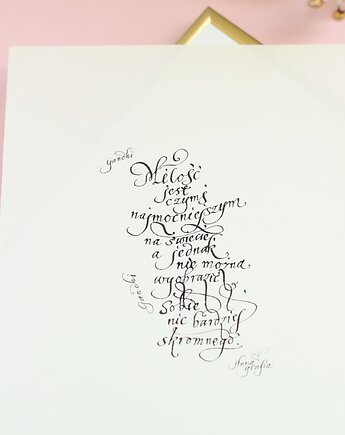 Gandhi
Miłość
jest
czymś
najmocniejszym
na świecie,
a jednak
nie można
wyobrazić
Gandhi
sobie
nic bardziej
skromnego.
Anna
grafia